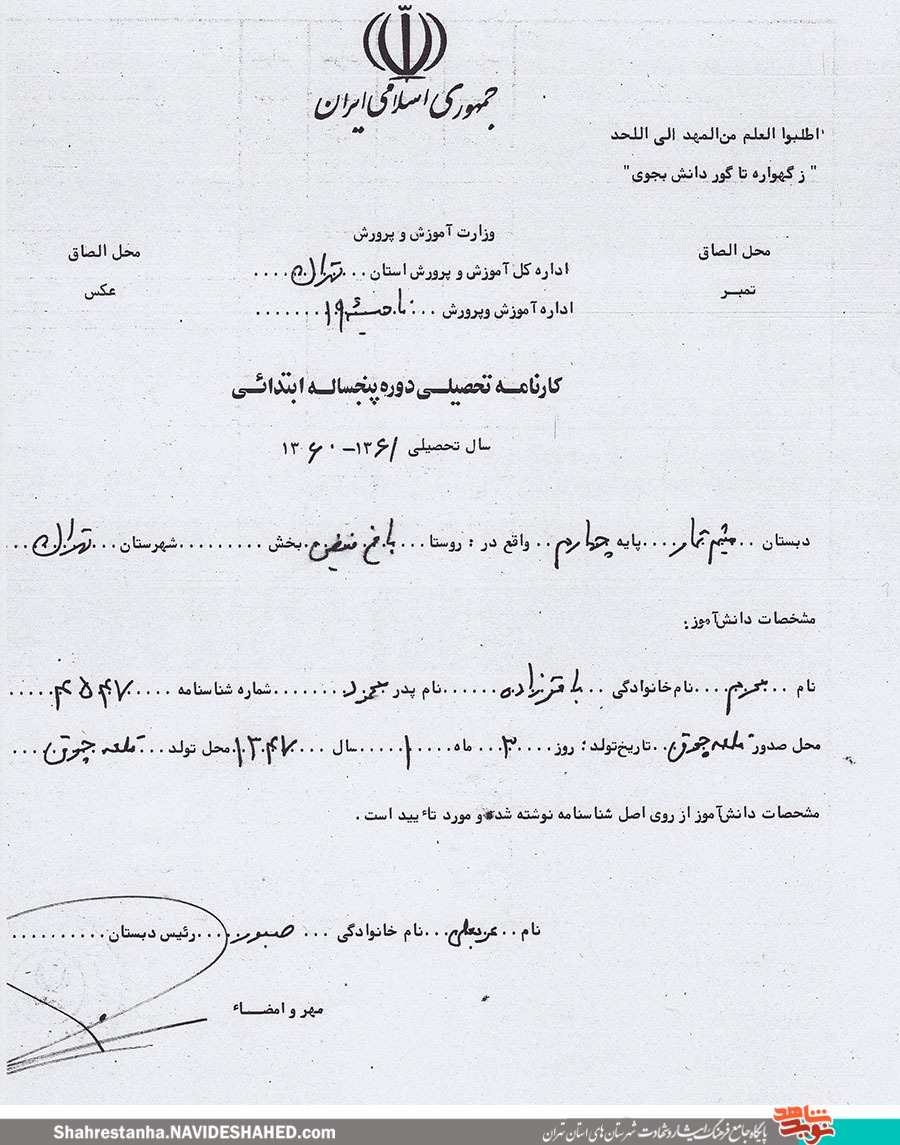 جمهوری اسلامی ایران
اطلبوا العلم من‌المهد الی اللحد
" ز گهواره تا گور دانش بجوی"
وزارت آموزش و پرورش
محل الصاق
تمبــر
محل الصاق
عکس
اداره کل آموزش و پرورش استان ... تهران ....
اداره آموزش وپرورش .... ناحیه ۱۹ ........
کارنامـه تحصیلـی دوره پنجسالـه ابتدائـی
سال تحصیلی ۱۳۶۱-۱۳۶۰
دبستان .. میثم تمار .... پایه چهارم .. واقع در : روستا ... باغ فیض . بخش ......... شهرستان ... تهران ...
مشخصات دانش‌آموز:
نام .. محرم .... نام‌خانوادگی .. باقرزاده ...... نام پدر محمد ........ شماره شناسنامه .... ۴۵۴۷ .....
محل صدور قلعه چوق .. تاریخ‌تولد: روز .... ۳ ... ماه .... ۱ ..... سال ... ۱۳۴۷ محل تولد ... قلعه چوق ...
مشحصات دانش‌آموز از روی اصل شناسنامه نوشته شده و مورد تأیید است .
نام .. ... نام خانوادگی ... صبور .... رئیس دبستان ..........
مهر و امضــاء
Shahrestanha.NAVIDESHAHED.com
پایگاه جامع فرهنگ ایثار و شهادت شهرستان های استان تهران
نوید شاهد